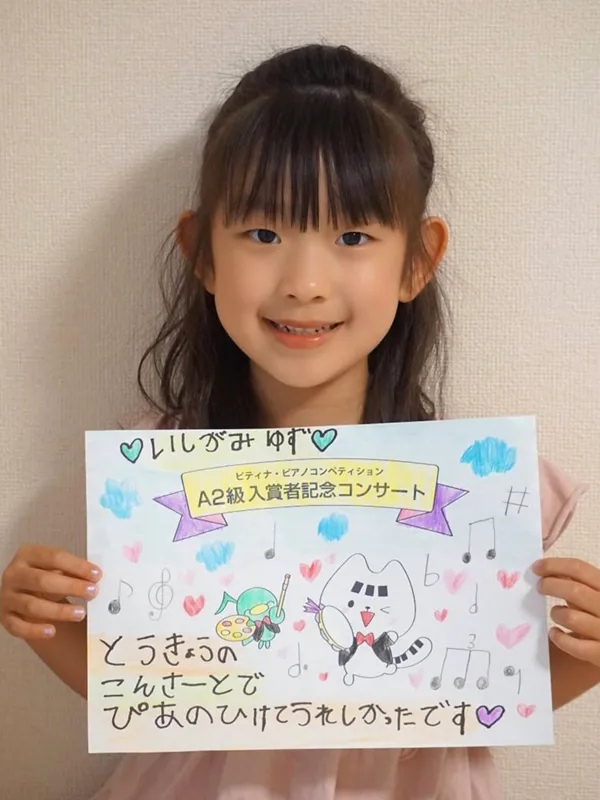 ♥いしがみ ゆず♥
ピティナ・ピアノコンペティション
A2級 入賞者記念コンサート
とうきょうの
こんさーとで
ぴあのひけてうれしかったです♥
3